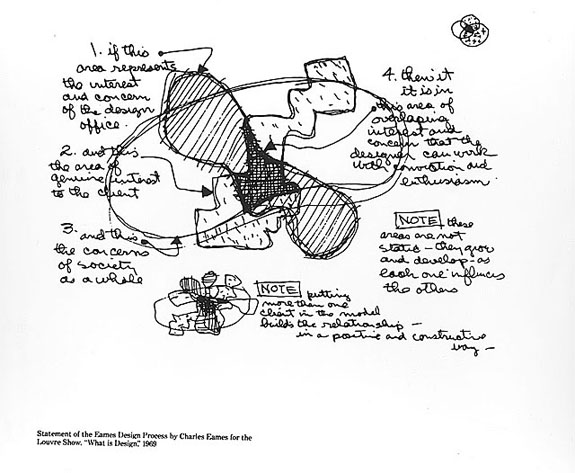 1. if this
area represents
the interest
and concern
of the design
office.
2. and this
the area of
genuine interest
to the client
3. and this
the concerns
of society
as a whole
4. then it
it is in
this area of
overlaping
interest and
concern that the
designer can work
with conviction and
enthusiasm.
NOTE these
areas are not
static – they grow
and develop – as
each one influences
the others
NOTE putting
more than one
client in the model
builds the relationship –
in a positive and constructive
way –
Statement of the Eames Design Process by Charles Eames for the
Louvre Show, "What is Design," 1969